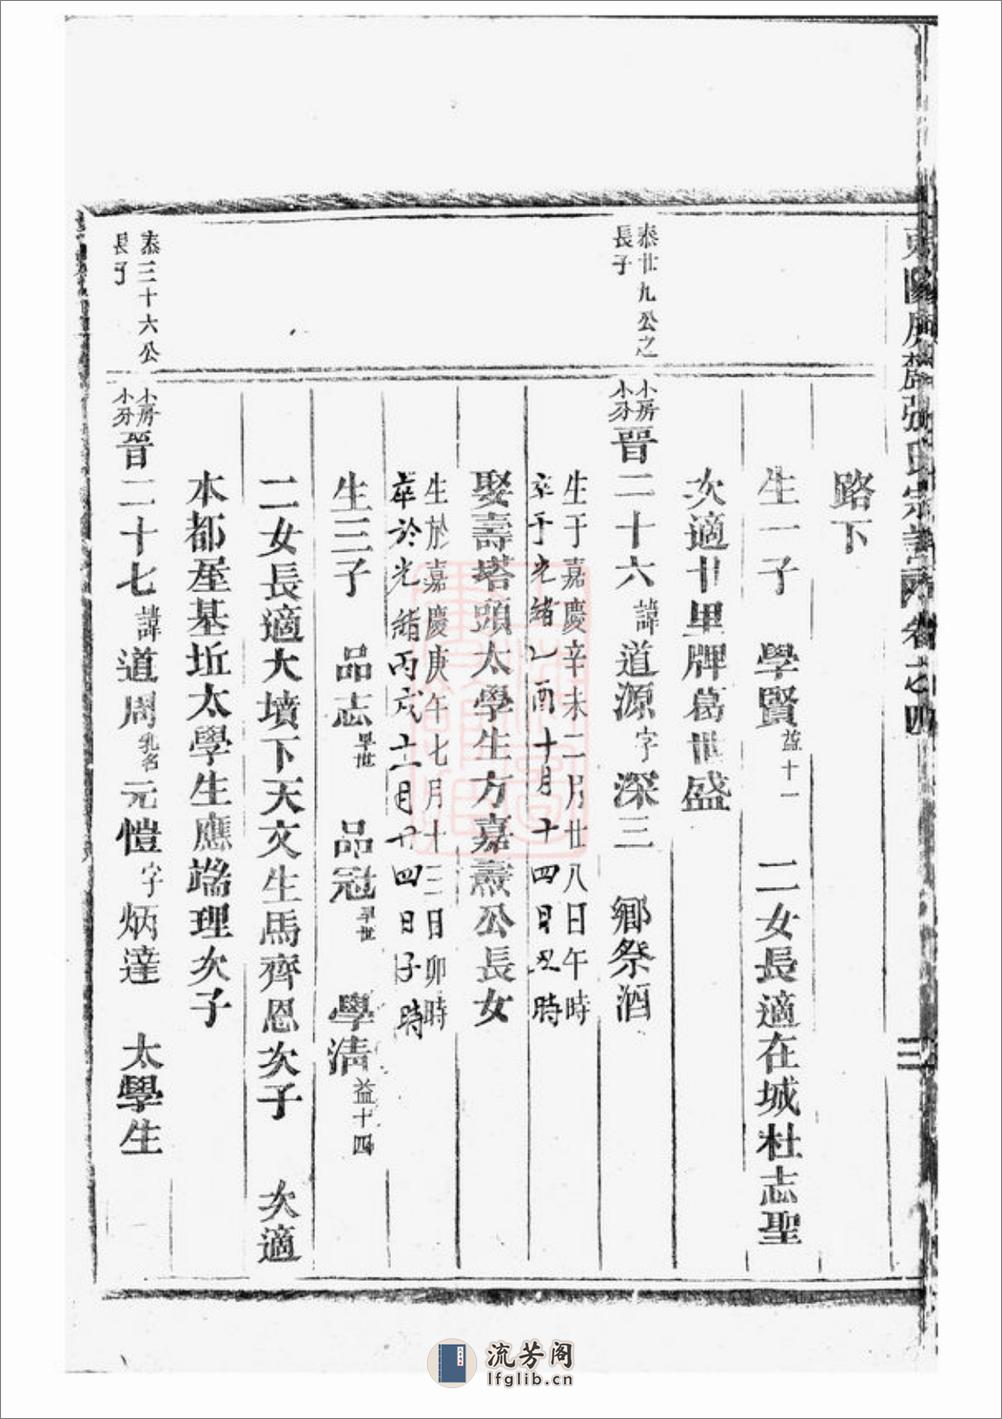 張氏宗譜 卷之四
三
路下
生一子 學賢 益十一 二女長適在城杜志聖
次適廿里牌葛世盛
泰廿九公之
長子
小房
小分
晉二十六 諱 道源 字 深三 鄉祭酒
生于嘉慶辛未二月廿八日午時
卒于光緒乙酉十月十四日丑時
娶壽塔頭太學生方嘉燾公長女
生於嘉慶庚午七月十三日卯時
卒於光緒丙戌十二月廿四日子時
生三子 品志 早世 品冠 早世 學清 益十四
二女長適大墳下天文生馬齊恩次子 次適
本都屋基坵太學生應端理次子
泰三十六公
長子
小房
小分
晉二十七 諱 道周 乳名 元愷 字 炳達 太學生
流芳阁
lfglib.cn